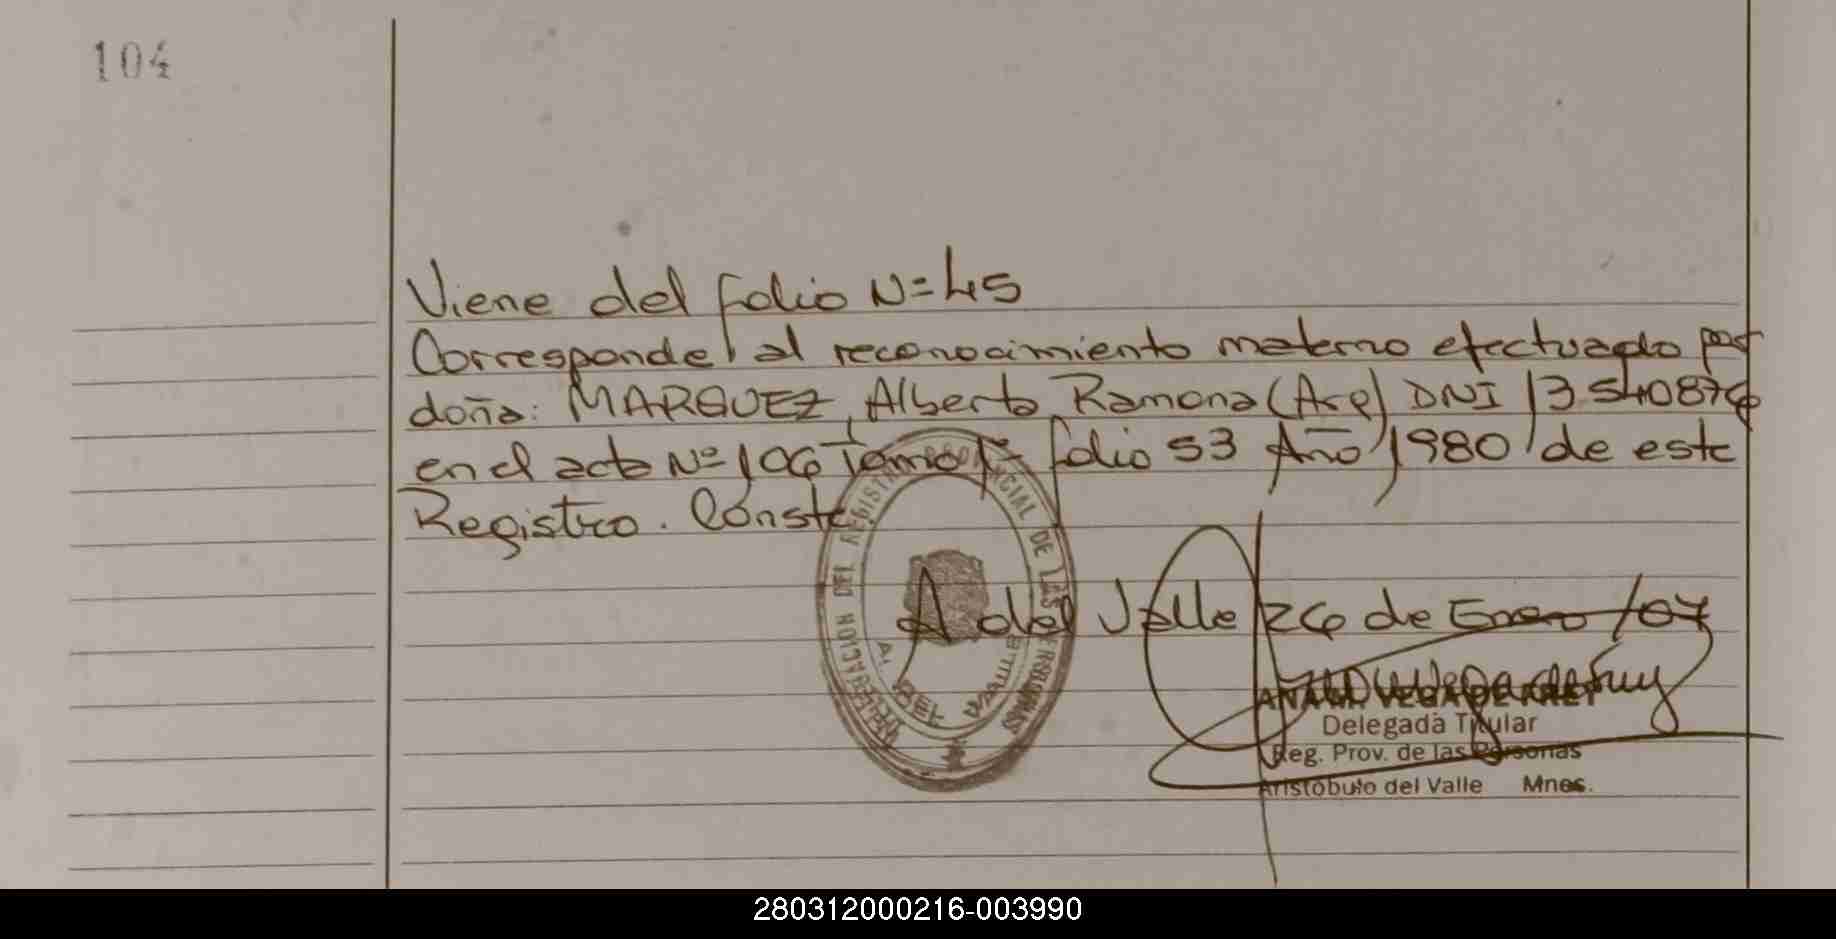 104
Viene del folio Nº 45
Corresponde al reconocimiento materno efectuado por
doña: MARQUEZ, Alberta Ramona (Arg) DNI 13.540876
en el acta Nº 106 Tomo 1º folio 53 Año 1980 de este
Registro. Conste.
A del Valle 26 de Enero /07
DELEGACION DEL REGISTRO PROVINCIAL DE LAS PERSONAS
A. DEL VALLE
VEGA DE
Delegada Titular
Reg. Prov. de las Personas
Aristóbulo del Valle Mnes.
280312000216-003990